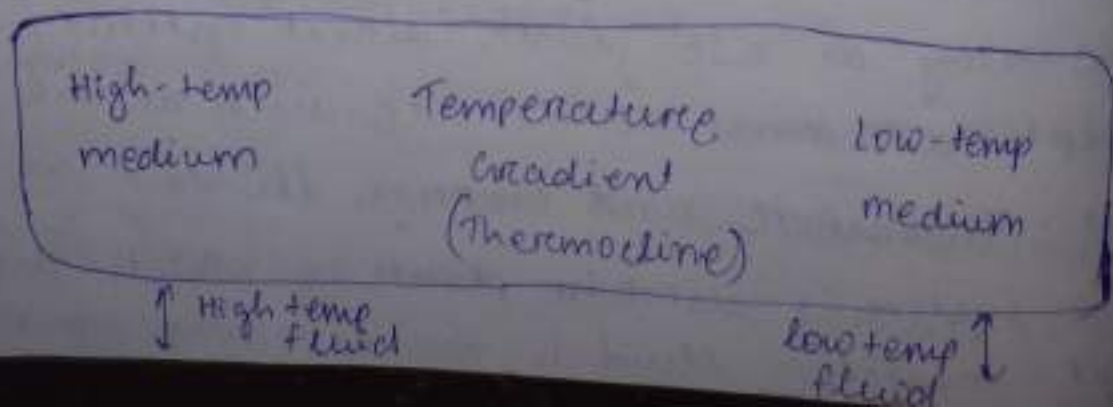 High-temp
medium
Temperature
Gradient
(Thermocline)
Low-temp
medium
High temp
fluid
low temp
fluid